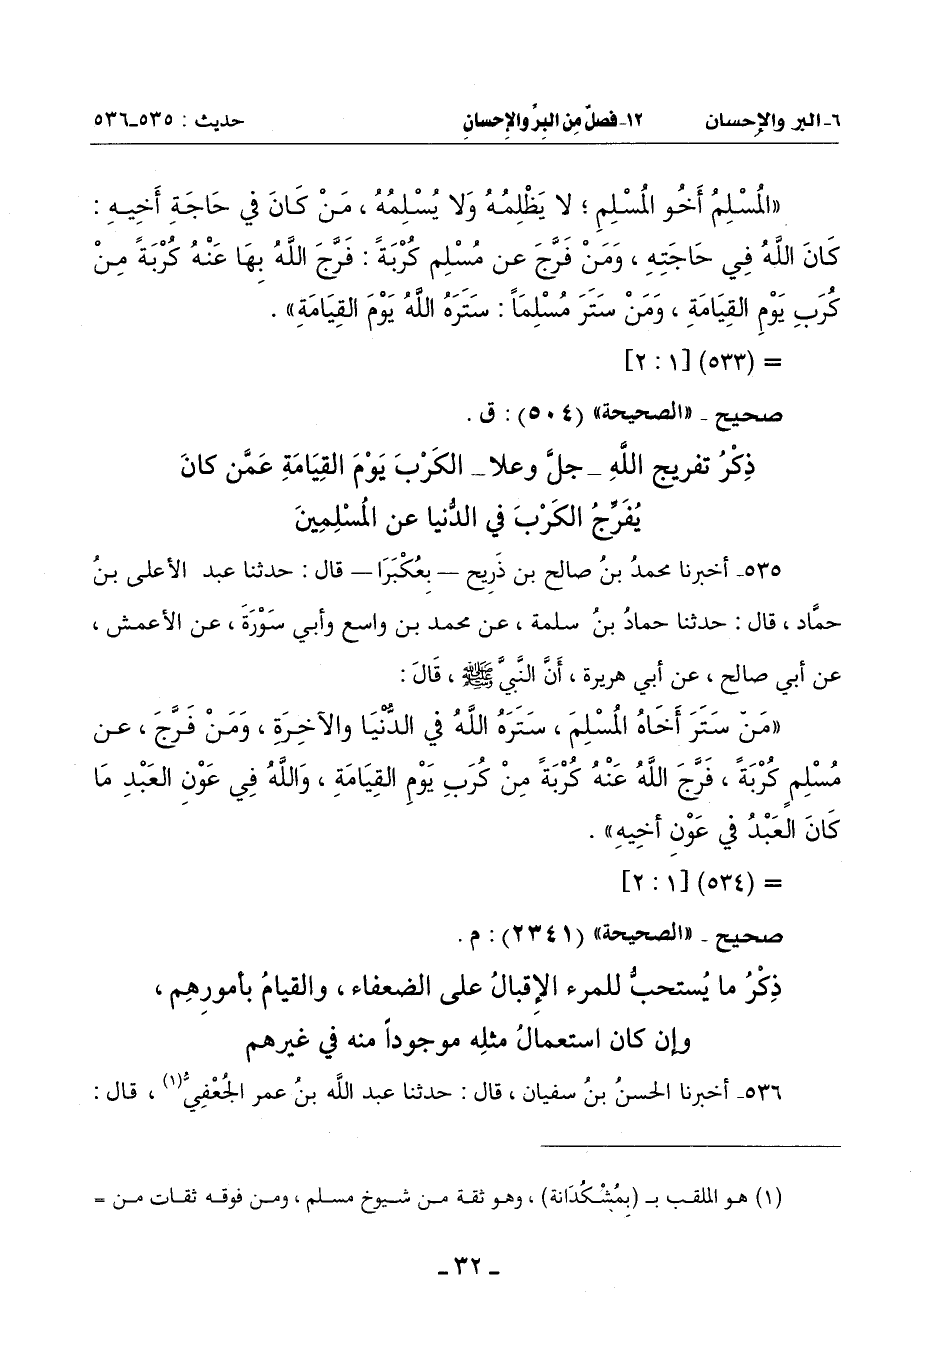 ٦- البر والإحسان ١٢- فصلٌ مِن البِرِّ والإحسانِ حديث : ٥٣٥-٥٣٦
«المُسْلِمُ أَخُو المُسْلِمِ ؛ لا يَظْلِمُهُ وَلا يُسْلِمُهُ ، مَنْ كَانَ في حَاجَةِ أَخِيهِ :
كَانَ اللَّهُ فِي حَاجَتِهِ ، وَمَنْ فَرَّجَ عن مُسْلِمٍ كُرْبَةً : فَرَّجَ اللَّهُ بِهَا عَنْهُ كُرْبَةً مِنْ
كُرَبِ يَوْمِ القِيَامَةِ ، وَمَنْ سَتَرَ مُسْلِمَاً : سَتَرَهُ اللَّهُ يَوْمَ القِيَامَةِ» .
= (٥٣٣) [١ : ٢]
صحيح - «الصحيحة» (٥٠٤) : ق .
ذِكْرُ تفريجِ اللَّهِ -جلَّ وعلا- الكَرْبَ يَوْمَ القِيَامَةِ عَمَّن كانَ
يُفَرِّجُ الكَرْبَ في الدُّنيا عن المُسْلِمِينَ
٥٣٥- أخبرنا محمدُ بنُ صالح بن ذَرِيح - بِعُكْبَرَا - قال : حدثنا عبد الأعلى بنُ
حمَّاد ، قال : حدثنا حمادُ بنُ سلمة ، عن محمد بن واسع وأبي سَوْرَةَ ، عن الأعمش ،
عن أبي صالح ، عن أبي هريرة ، أَنَّ النَّبيَّ ﷺ ، قَالَ :
«مَنْ سَتَرَ أَخَاهُ المُسْلِمَ ، سَتَرَهُ اللَّهُ في الدُّنْيَا والآخِرَةِ ، وَمَنْ فَرَّجَ ، عن
مُسْلِمٍ كُرْبَةً ، فَرَّجَ اللَّهُ عَنْهُ كُرْبَةً مِنْ كُرَبِ يَوْمِ القِيَامَةِ ، وَاللَّهُ فِي عَوْنِ العَبْدِ مَا
كَانَ العَبْدُ في عَوْنِ أَخِيهِ» .
= (٥٣٤) [١ : ٢]
صحيح - «الصحيحة» (٢٣٤١) : م .
ذِكْرُ ما يُستحبُّ للمرء الإقبالُ على الضعفاء ، والقيامُ بأمورِهِم ،
وإن كان استعمالُ مثلِه موجوداً منه في غيرهم
٥٣٦- أخبرنا الحسنُ بنُ سفيان ، قال : حدثنا عبد اللَّه بنُ عمر الجُعْفِيُّ(١) ، قال :
(١) هو الملقب بـ (بِمُشْكُدَانة) ، وهو ثقة من شيوخ مسلم ، ومن فوقه ثقات من =
- ٣٢ -